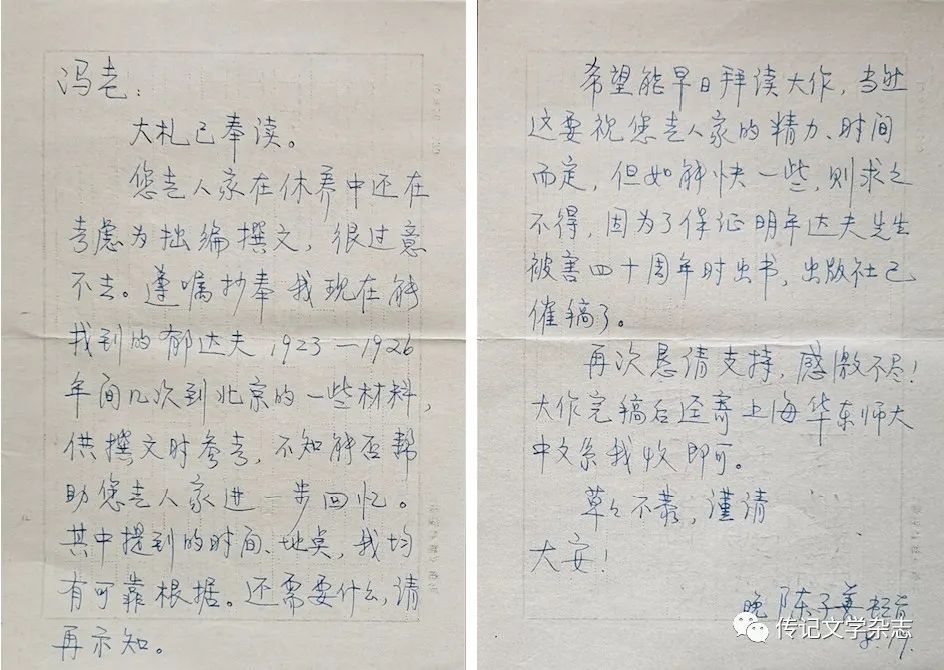 冯老：
大札已奉读。
您老人家在休养中还在
考虑为拙编撰文，很过意
不去。遵嘱抄奉我现在能
找到的郁达夫1923—1926
年间几次到北京的一些材料，
供撰文时参考，不知能否帮
助您老人家进一步回忆。
其中提到的时间、地点，我均
有可靠根据。还需要什么，请
再示知。
希望能早日拜读大作，当然
这要视您老人家的精力、时间
而定，但如能快一些，则求之
不得，因为了保证明年达夫先生
被害四十周年时出书，出版社已
催稿了。
再次恳请支持，感激不尽！
大作完稿后迳寄上海华东师大
中文系我收即可。
草々不恭，谨请
大安！
晚 陈子善
传记文学杂志